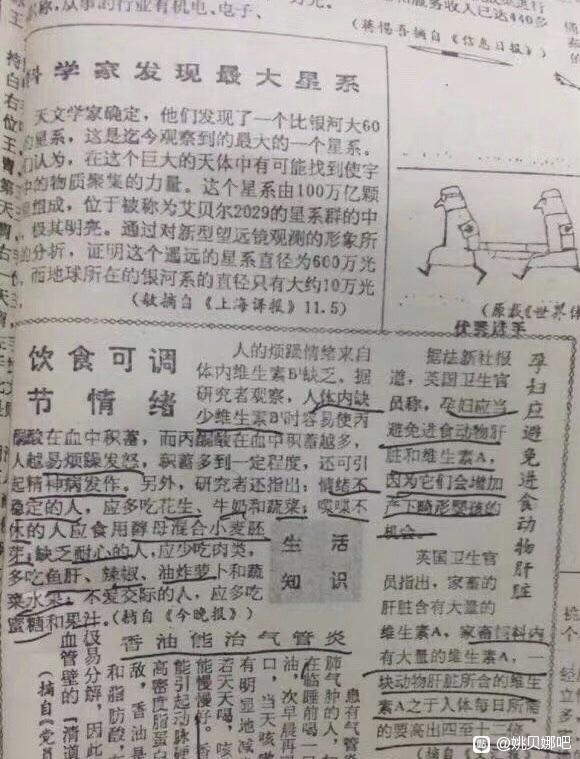 称,从事的行业有机电、电子、
和服务收入已达440多
(蒋惕吾摘自《信息日报》)
科学家发现最大星系
天文学家确定,他们发现了一个比银河大60
的星系,这是迄今观察到的最大的一个星系。
们认为,在这个巨大的天体中有可能找到使宇
中的物质聚集的力量。这个星系由100万亿颗
星组成,位于被称为艾贝尔2029的星系群的中
极其明亮。通过对新型望远镜观测的形象所
的分析,证明这个遥远的星系直径为600万光
而地球所在的银河系的直径只有大约10万光
(敏摘自《上海译报》11.5)
(原载《世界体
优秀选手
饮食可调
节情绪
人的烦躁情绪来自
体内维生素B¹缺乏。据
研究者观察,人体内缺
少维生素B¹时容易使丙
酮酸在血中积蓄,而丙酮酸在血中积蓄越多,
人越易烦躁发怒,积蓄多到一定程度,还可引
起精神病发作。另外,研究者还指出:情绪不
稳定的人,应多吃花生、牛奶和蔬菜;唉叹不
休的人应食用酵母混合小麦胚
芽;缺乏耐心的人,应少吃肉类,
多吃鱼肝、辣椒、油炸萝卜和蔬
菜水果;不爱交际的人,应多吃
蜜糖和果汁。(摘自《今晚报》)
生活
知识
孕妇应避免进食动物肝脏
据法新社报
道,英国卫生官
员称,孕妇应当
避免进食动物肝
脏和维生素A,
因为它们会增加
产下畸形婴孩的
机会。
英国卫生官
员指出,家畜的
肝脏含有大量的
维生素A,家畜饲料内
有大量的维生素A,一
块动物肝脏所含的维生
素A之于人体每日所需
的要高出四至十二倍。
(摘自
香油能治气管炎
患有气管炎
肺气肿的人,
在临睡前喝一口
油,次早晨再
口,当天咳嗽
有明显地减
若天天喝,咳
能慢慢好。香
能引起动脉硬
高密度脂蛋白
敌,香油是
和脂肪酸,
极易分解,因此
血管壁的"清道
(摘自《党员
@姚贝娜吧